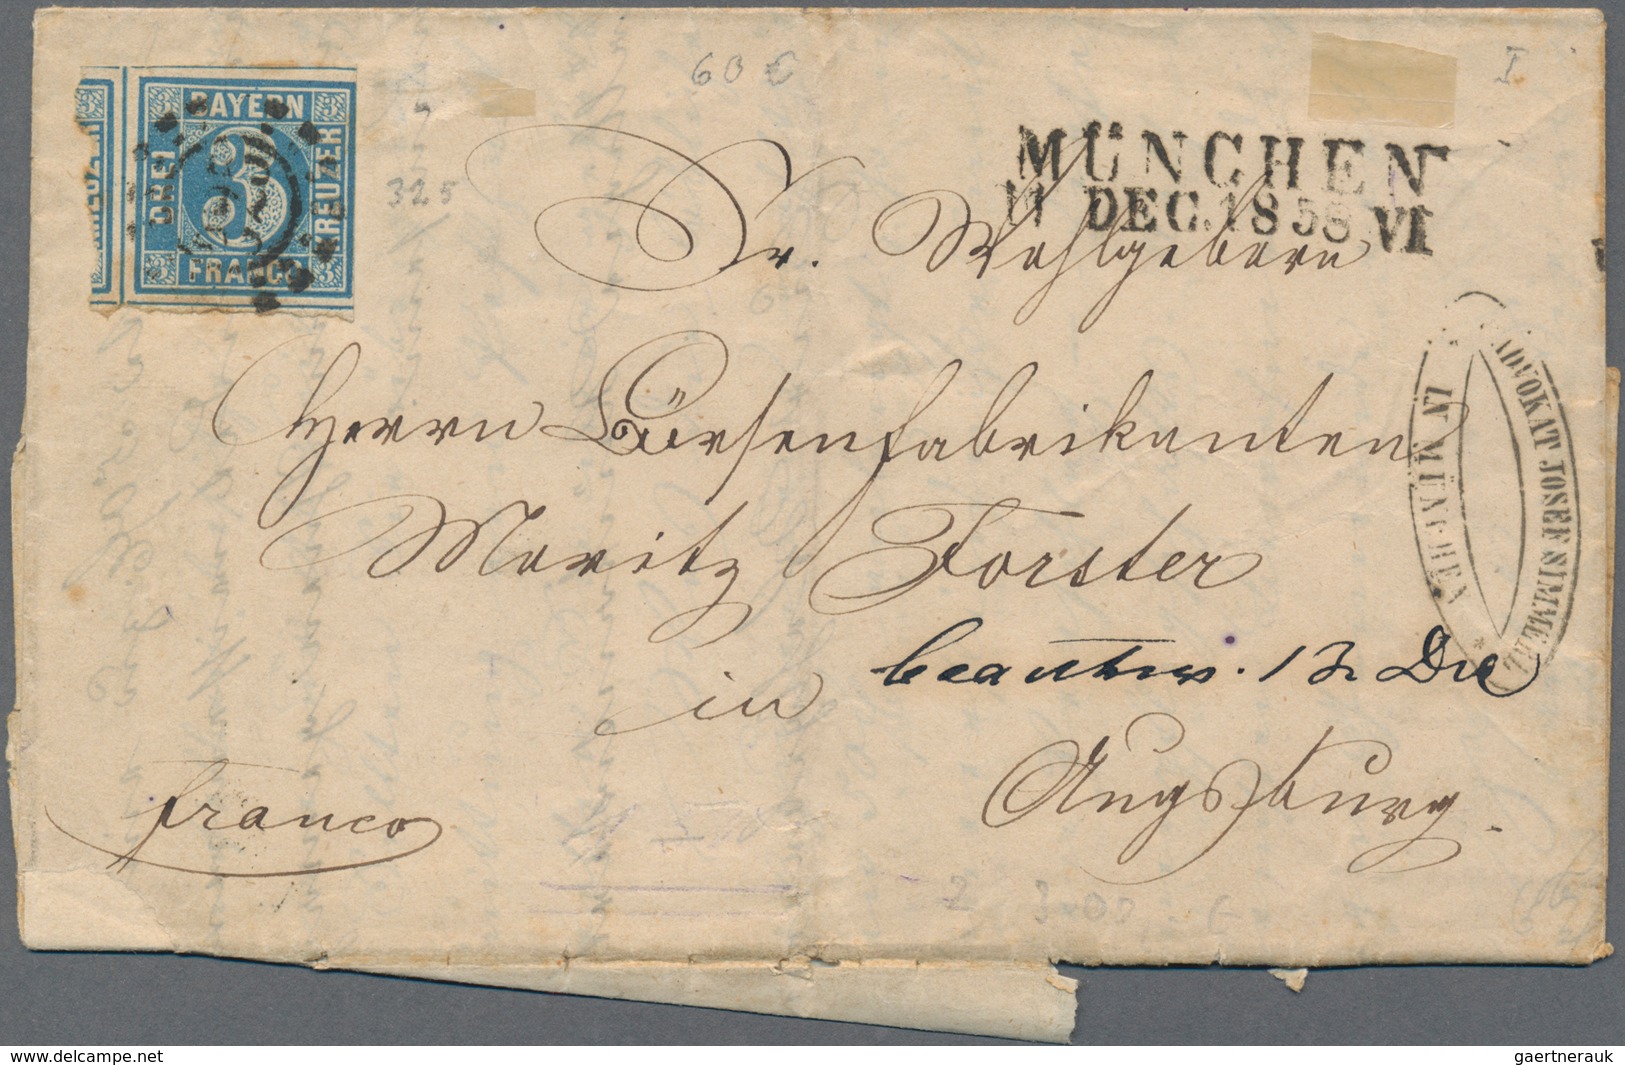 BAYERN
DREI
KREUZER
FRANCO
3
325
60 €
I
MÜNCHEN
11 DEC. 1858 VI
Sr. Wohlgeboren
Herrn Bürstenfabrikanten
Moritz Forster
in
beantw. 13 Dec
Augsburg.
franco
ADVOKAT JOSEF SIMMERL
IN MÜNCHEN *
www.delcampe.net
gaertnerauk